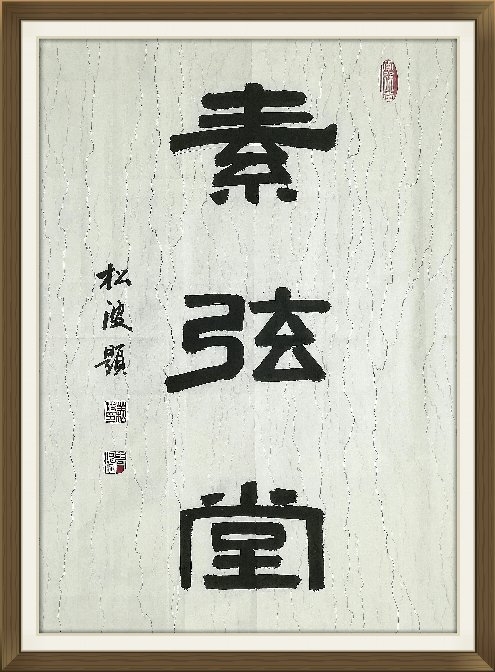 素弦堂
松波題